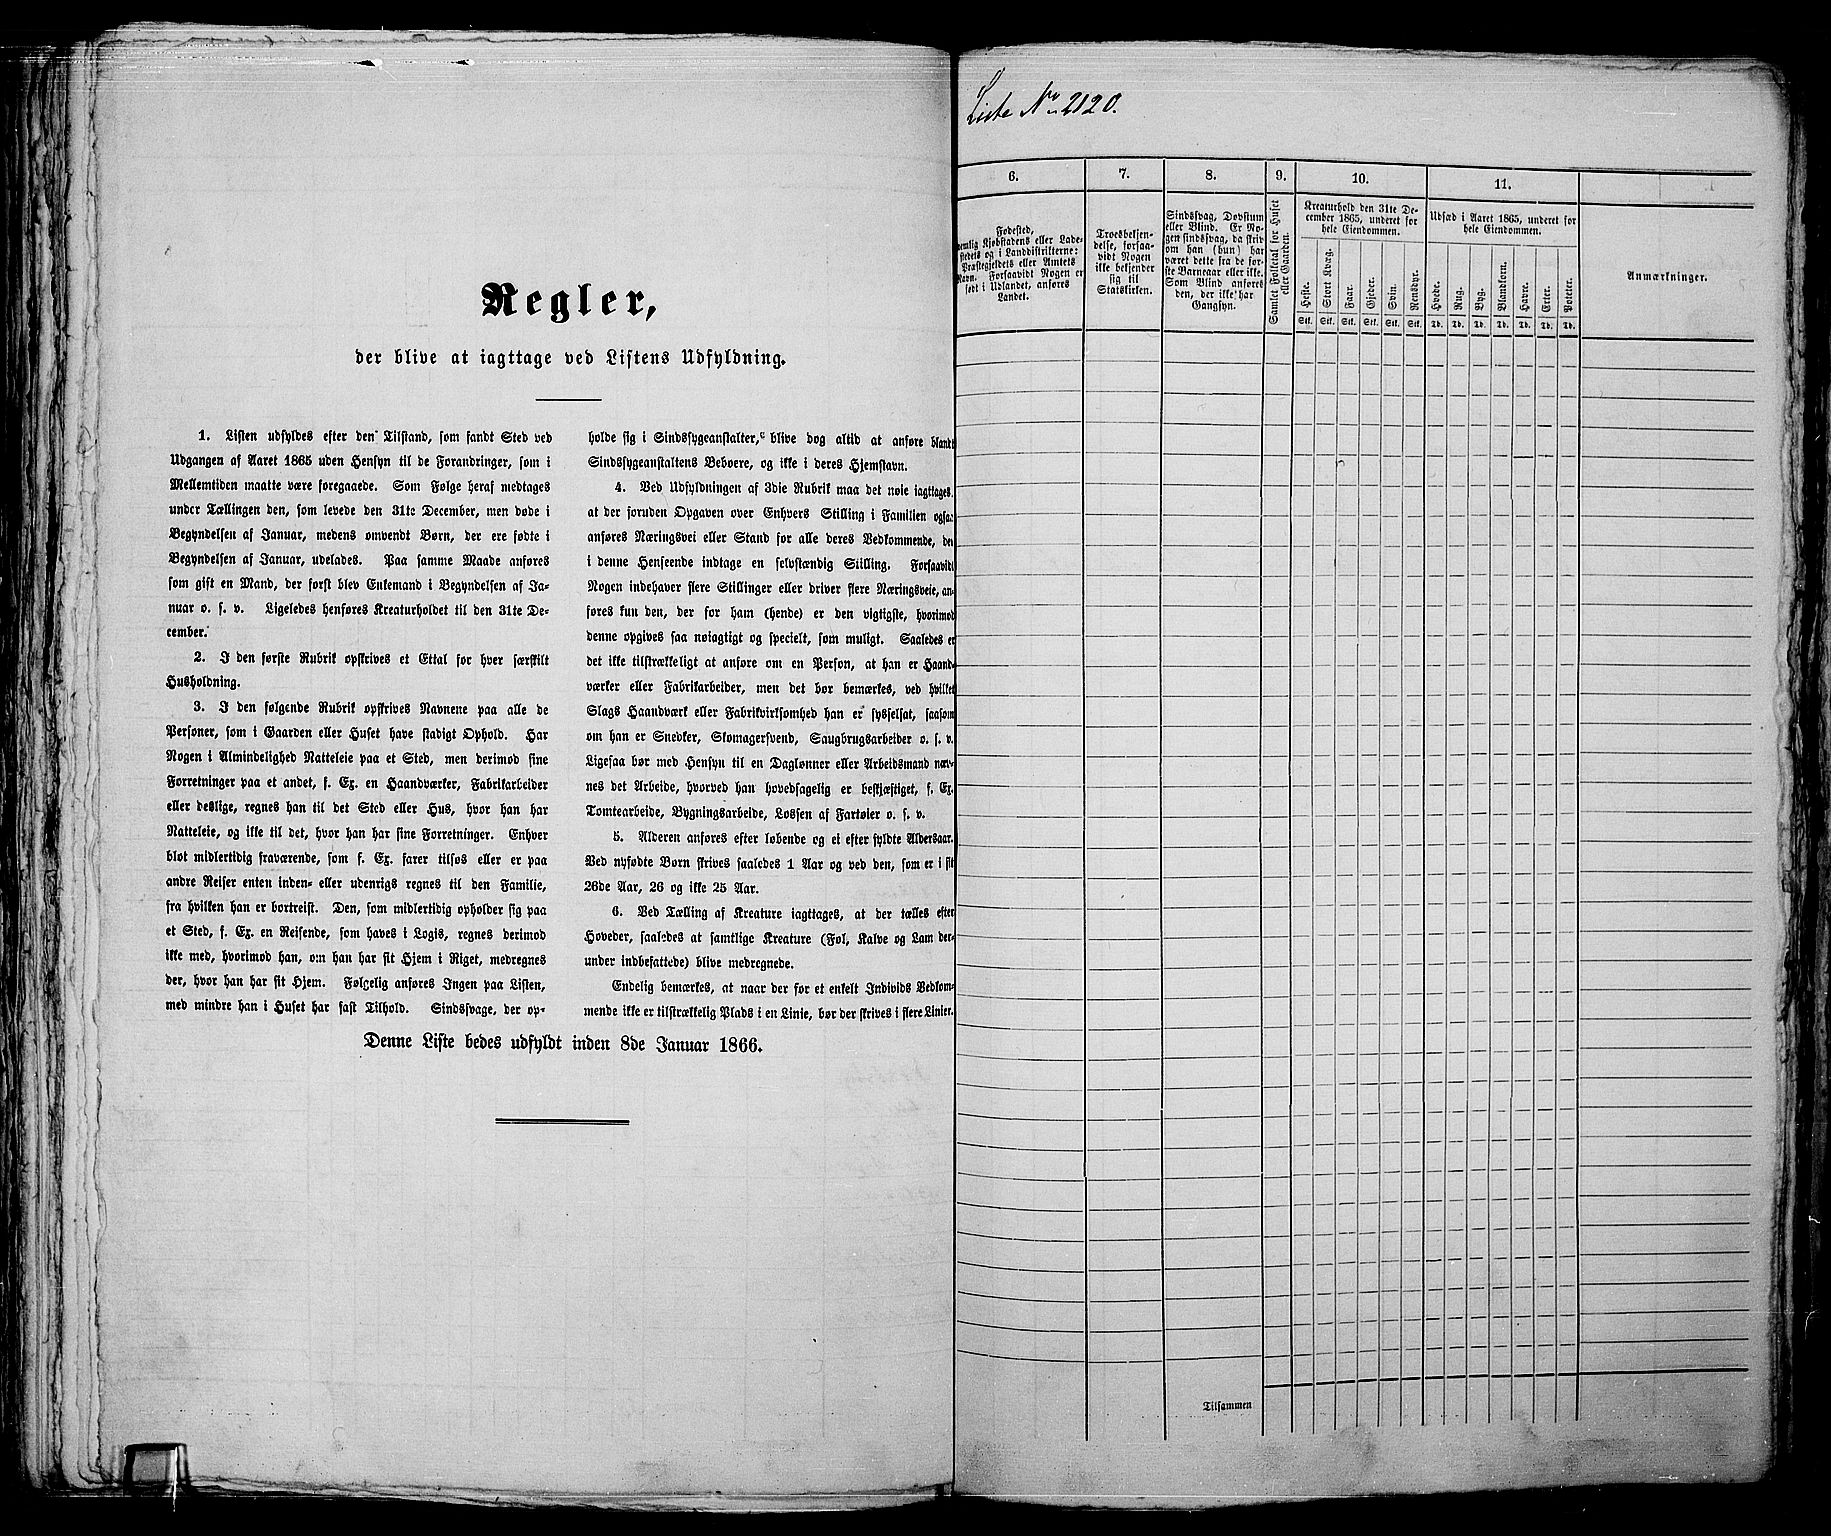 Regler,
der blive at iagttage ved Listens Udfyldning.
1. Listen udfyldes efter den Tilstand, som fandt Sted ved
Udgangen af Aaret 1865 uden Hensyn til de Forandringer, som i
Mellemtiden maatte være foregaaede. Som Følge heraf medtages
under Tællingen den, som levede den 31te December, men døde i
Begyndelsen af Januar, medens omvendt Børn, der ere fødte i
Begyndelsen af Januar, udelades. Paa samme Maade anføres
som gift en Mand, der først blev Enkemand i Begyndelsen af Ja-
nuar o. s. v. Ligeledes henføres Kreaturholdet til den 31te De-
cember.
2. I den første Rubrik opskrives et Ettal for hver særskilt
Husholdning.
3. I den følgende Rubrik opskrives Navnene paa alle de
Personer, som i Gaarden eller Huset have stadigt Ophold. Har
Nogen i Almindelighed Natteleie paa et Sted, men derimod sine
Forretninger paa et andet, f. Ex. en Haandværker, Fabrikarbeider
eller deslige, regnes han til det Sted eller Hus, hvor han har
Natteleie, og ikke til det, hvor han har sine Forretninger. Enhver
blot midlertidig fraværende, som f. Ex. farer tilsøs eller er paa
andre Reiser enten inden- eller udenrigs regnes til den Familie,
fra hvilken han er bortreist. Den, som midlertidig opholder sig paa
et Sted, f. Ex. en Reisende, som haves i Logis, regnes derimod
ikke med, hvorimod han, om han har sit Hjem i Riget, medregnes
der, hvor han har sit Hjem. Følgelig anføres Ingen paa Listen,
med mindre han i Huset har fast Tilhold. Sindssvage, der op-
holde sig i Sindssygeanstalter, blive dog altid at anføre blandt
Sindssygeanstaltens Beboere, og ikke i deres Hjemstavn.
4. Ved Udfyldningen af 3die Rubrik maa det nøie iagttages,
at der foruden Opgaven over Enhvers Stilling i Familien ogsaa
anføres Næringsvei eller Stand for alle deres Vedkommende, der
i denne Henseende indtage en selvstændig Stilling. Forsaavidt
Nogen indehaver flere Stillinger eller driver flere Næringsveie, an-
føres kun den, der for ham (hende) er den vigtigste, hvorimod
denne opgives saa nøiagtigt og specielt, som muligt. Saaledes er
det ikke tilstrækkeligt at anføre om en Person, at han er Haand-
værker eller Fabrikarbeider, men det bør bemærkes, ved hvilket
Slags Haandværk eller Fabrikvirksomhed han er sysselsat, saasom
om han er Snedker, Skomagersvend, Saugbrugsarbeider o. s. v.
Ligesaa bør med Hensyn til en Daglønner eller Arbeidsmand næv-
nes det Arbeide, hvorved han hovedsagelig er beskjæftiget, f. Ex.
Tomtearbeide, Bygningsarbeide, Lossen af Fartøier o. s. v.
5. Alderen anføres efter løbende og ei efter fyldte Aldersaar.
Ved nyfødte Børn skrives saaledes 1 Aar og ved den, som er i sit
26de Aar, 26 og ikke 25 Aar.
6. Ved Tælling af Kreature iagttages, at der tælles efter
Hoveder, saaledes at samtlige Kreature (Føl, Kalve og Lam der-
under indbefattede) blive medregnede.
Endelig bemærkes, at naar der for et enkelt Individs Vedkom-
mende ikke er tilstrækkelig Plads i en Linie, bør der skrives i flere Linier.
Denne Liste bedes udfyldt inden 8de Januar 1866.
Liste No 2120.
6. 7. 8. 9. 10. 11.
Fødested,
nemlig Kjøbstadens eller Lade-
stedets og i Landdistrikterne:
Præstegjeldets eller Amtets
Navn. Forsaavidt Nogen er
født i Udlandet, anføres
Landet.
Troesbekjen-
delse, forsaa-
vidt Nogen
ikke bekjender
sig til
Statskirken.
Sindssvag, Døvstum
eller Blind. Er No-
gen sindssvag, da skriv
om han (hun) har
været dette fra de før-
ste Barneaar eller ikke.
Som Blind anføres
den, der ikke har
Gangsyn.
Samlet Folketal for Huset
eller Gaarden.
Kreaturhold den 31te De-
cember 1865, underet for
hele Eiendommen.
Heste. Stort Kvæg. Faar. Gjeder. Svin. Rensdyr.
Stk. Stk. Stk. Stk. Stk. Stk.
Udsæd i Aaret 1865, underet for
hele Eiendommen.
Hvede. Rug. Byg. Blandkorn. Havre. Erter. Poteter.
Td. Td. Td. Td. Td. Td. Td.
Anmærkninger.
Tilsammen